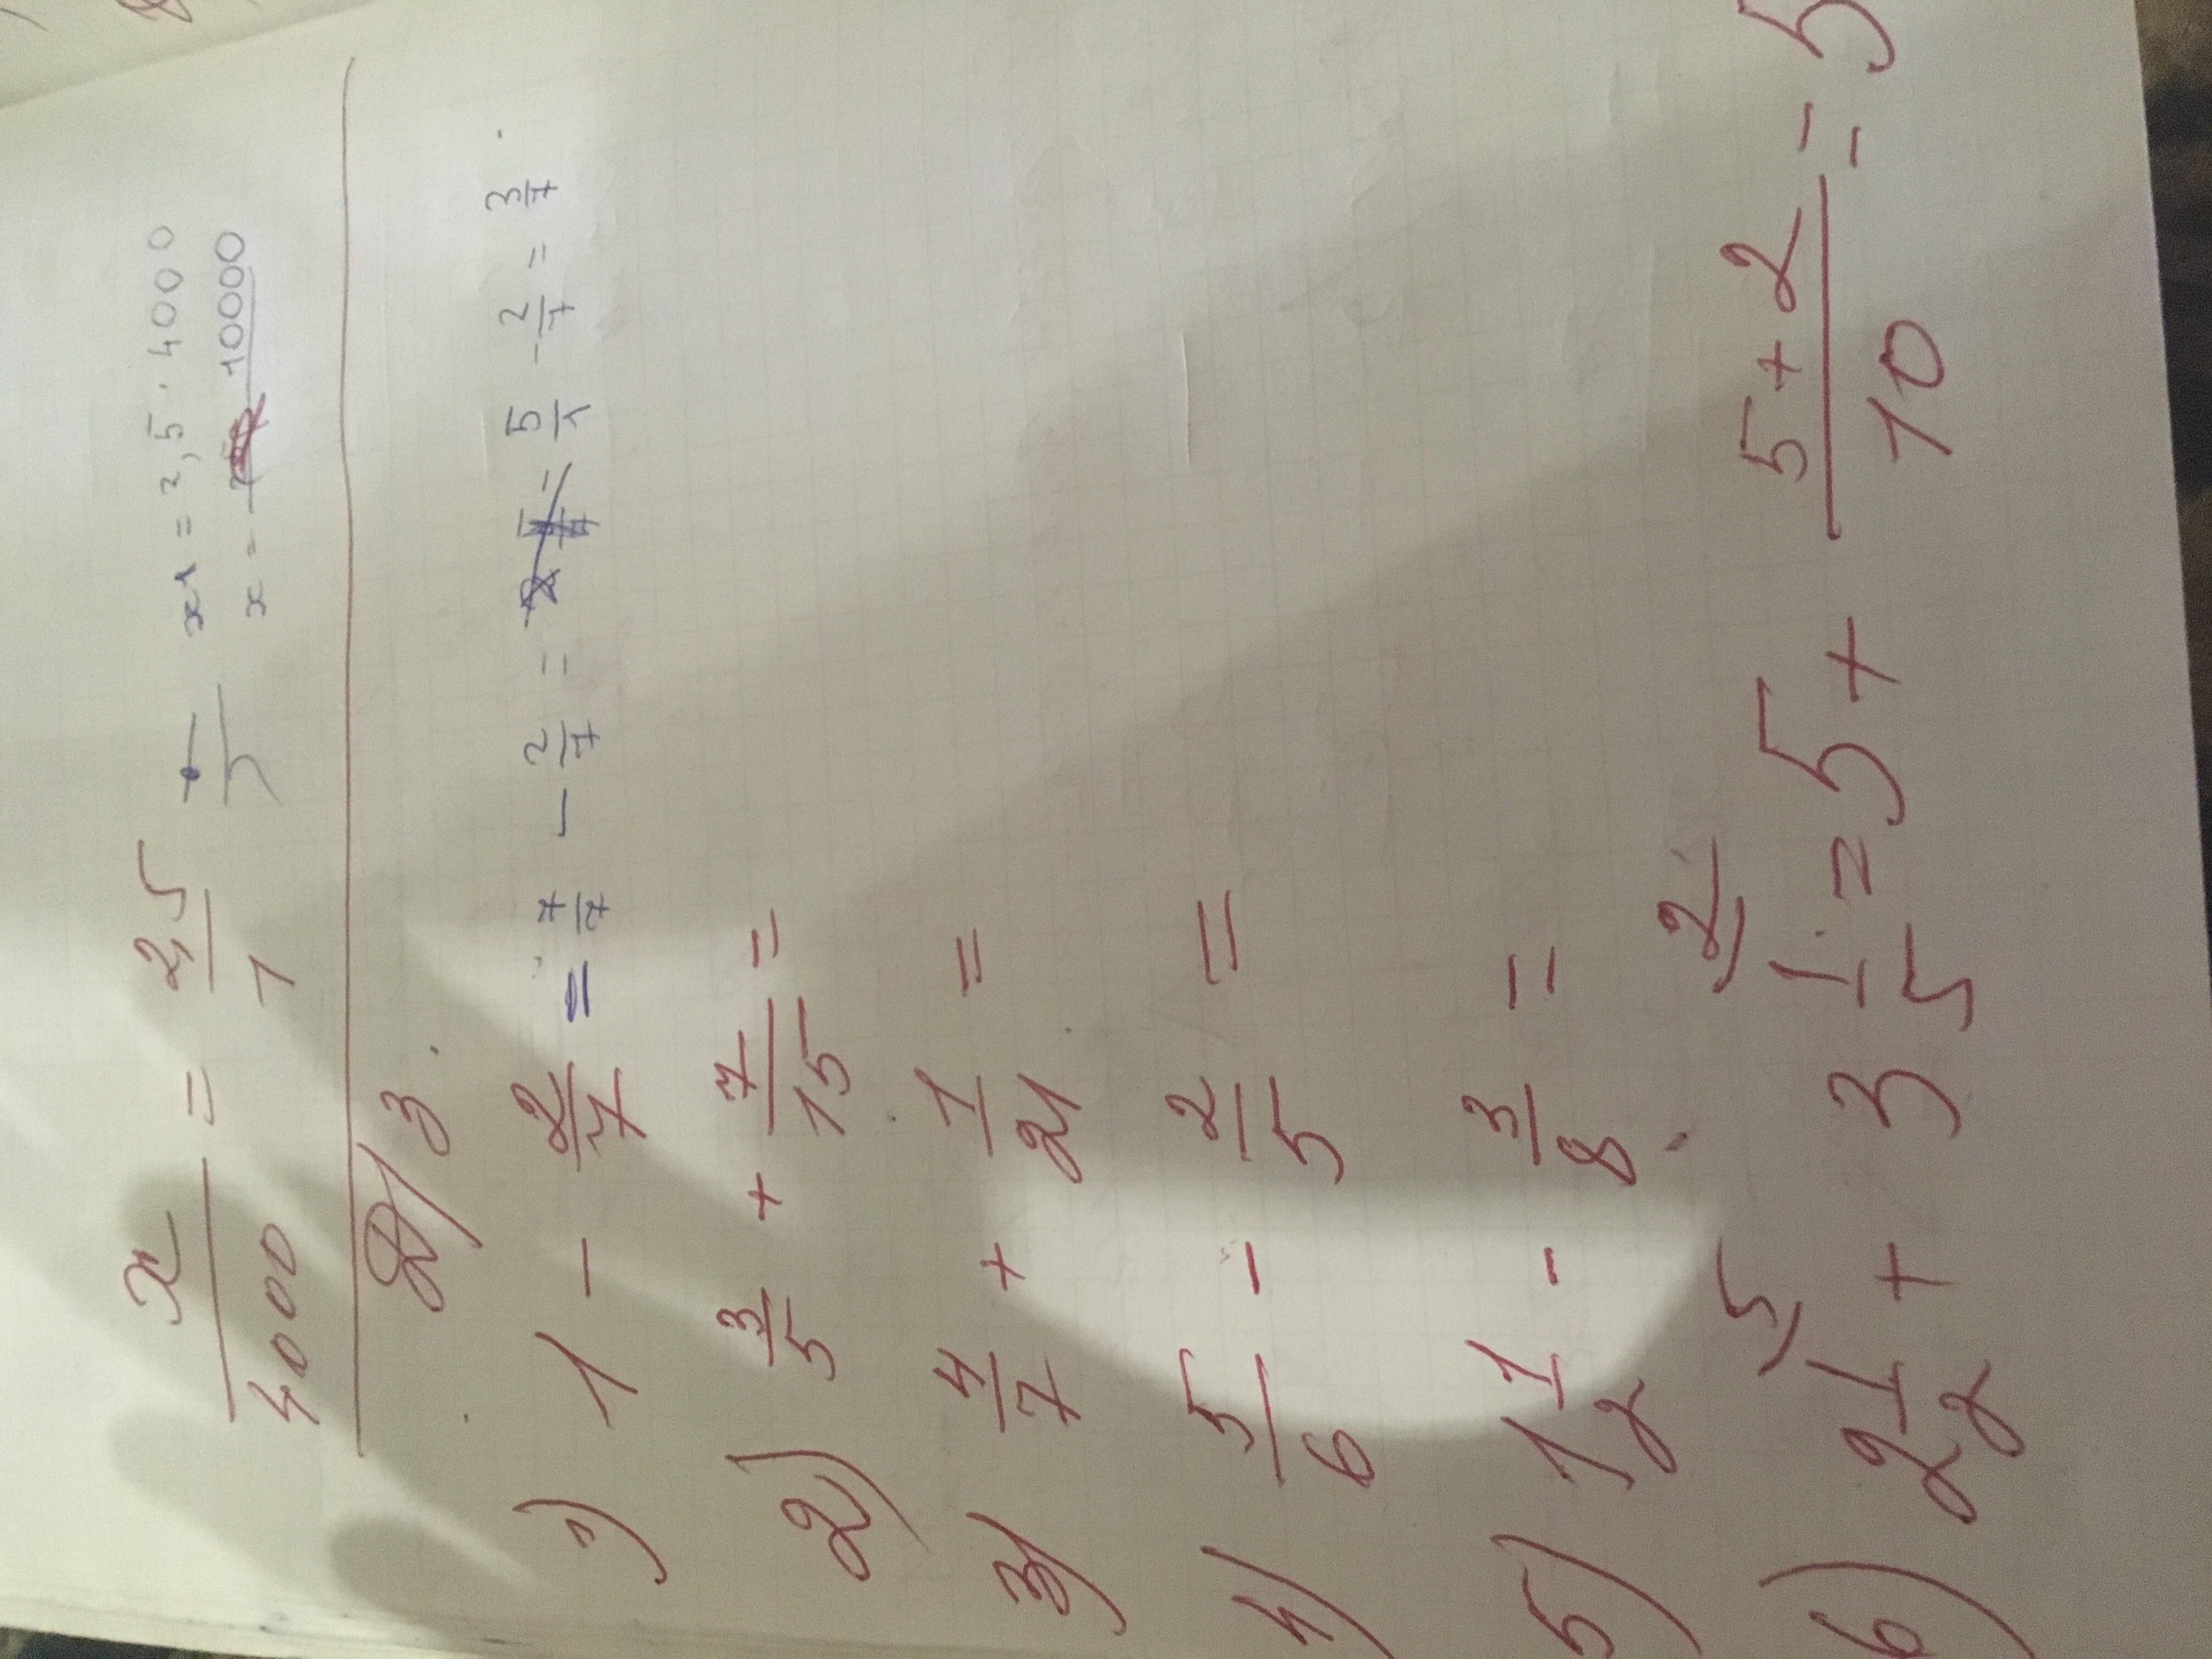 x/4000 = 2,5/1 x = 2,5 · 4000
x = 10000
Д/З.
1) 1 - 2/7 = 7/7 - 2/7 = 5/7 - 2/7 = 3/7
2) 3/5 + 7/15 =
3) 4/7 + 1/21 =
4) 5/6 - 2/5 =
5) 1 1/2 - 3/8 =
5 2
6) 2 1/2 + 3 1/5 = 5 + (5+2)/10 = 5